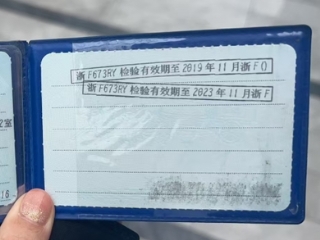 浙F673RY检验有效期至2019年11月浙F()
浙F673RY检验有效期至2023年11月浙F
室
18